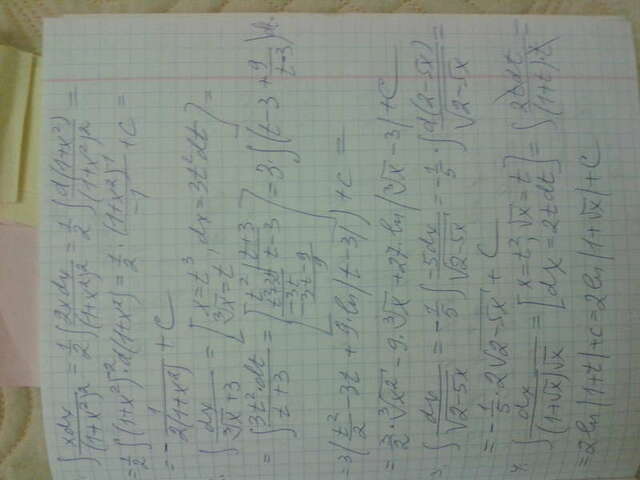 ∫ xdx/(1+x²)² = 1/2 ∫ 2xdx/(1+x²)² = 1/2 ∫ d(1+x²)/(1+x²)² =
= 1/2 ∫ (1+x²)⁻² · d(1+x²) = 1/2 · (1+x²)⁻¹/-1 + C =
= - 1/2(1+x²) + C
∫ dx/∛x+3 = [x = t³, ∛x = t, dx = 3t²dt] =
= ∫ 3t²·dt/t+3 = 3·∫ (t-3 + 9/t+3) dt =
= 3(t²/2 - 3t + 9·ln|t-3|) + C =
= 3/2·∛x² - 9·∛x + 27·ln|∛x - 3| + C
3. ∫ dx/√2-5x = -1/5 ∫ -5dx/√2-5x = -1/5 · ∫ d(2-5x)/√2-5x =
= -1/5 · 2√2-5x + C
4. ∫ dx/(1+√x)√x = [x = t², √x = t, dx = 2tdt] = ∫ 2tdt/(1+t)·t =
= 2ln|1+t| + C = 2ln|1+√x| + C